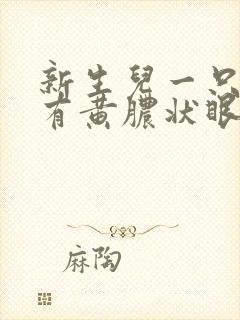 新生儿一只
有黄脓状眼
麻陶